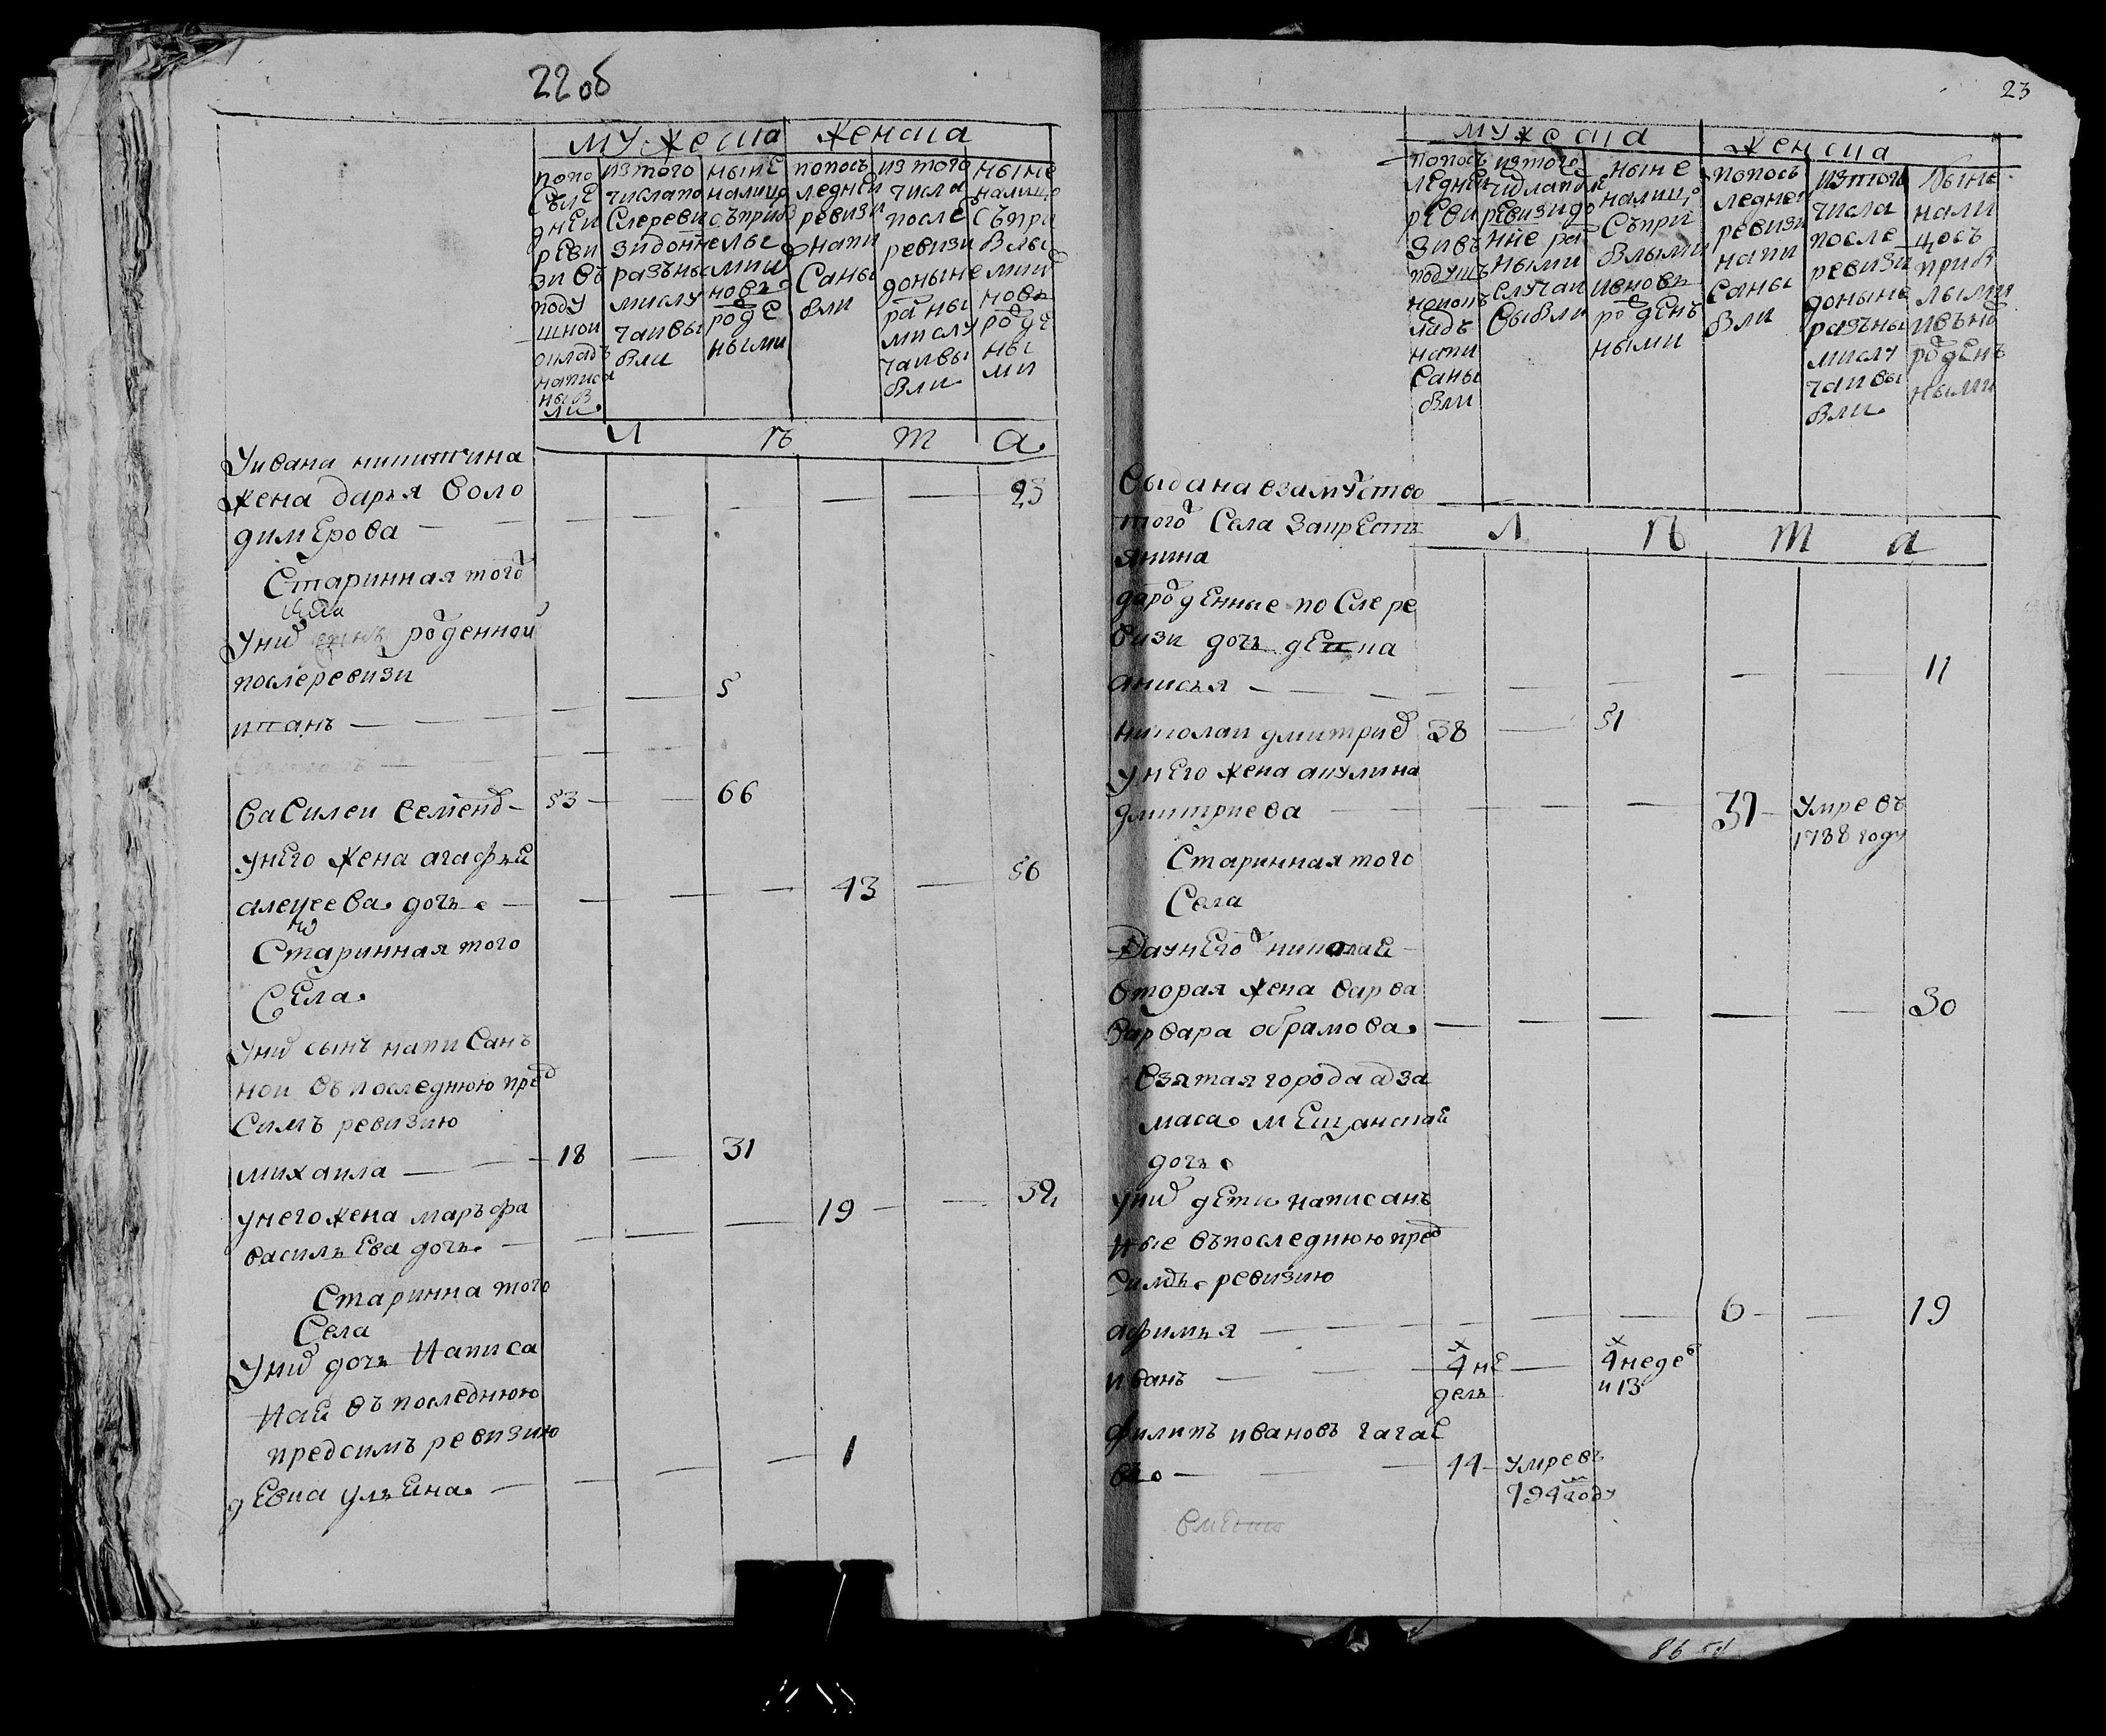 22 об
мужеска женска
попо
сле
дней
реви
зи въ
поду
шной
окладъ
написа
ны б
ли
изтого
числа по
сле реви
зи до н
разны
ми слу
чаи вы
бли
ныне
на лицо
съ приб
елы
ми и
новъ
роде
ными
попосъ
ледней
ревизи
напи
саны
бли
из того
числа
после
ревизи
доныне
разны
ми слу
чаи вы
бли
ныне
на лицо
съ при
былы
ми и
новъ
роде
ны
ми
Л ѣ т а
У ивана никитина
жена дарья воло
димерова — 23
Старинная того
села
У них сынъ роденной
после ревизи
иванъ — 5
василеи семенов — 53 — 66
у него жена агафья
алексеева дочь — 43 — 56
Старинная того
Села
У них сынъ написанъ
ной въ последнюю пред
симъ ревизию
михаила — 18 — 31
у него жена маръфа
васильева дочь — 19 — 32
Старинна того
Села
У них дочь написа
ная въ последнюю
предсимъ ревизию
девка ульяна — 1
23
мужеска женска
попосъ
ледней
реви
зи въ
подушъ
ной
окладъ
напи
саны
бли
изтого
числа после
ревизи до
ныне раз
ными
случаи
выбли
ныне
на лицо
съ при
былыми
и новъ
роденъ
ными
попосъ
ледней
ревизи
напи
саны
бли
из того
числа
после
ревизи
доныне
разны
ми слу
чаи вы
бли
ныне
нали
цосъ
прибы
лыми
и въно
роденъ
ными
выдана взамуство
того села за крестъ
янина
Л ѣ т а
да роденные после ре
визи дочь девка
анисья — 11
николаи дмитриев 38 — 51
у него жена акулина
дмитриева — 37 — умре въ
1788 году
Старинная того
Села
Да у него николая
вторая жена варва
варвара обрамова — 30
взятая города арза
маса мещанской
дочь
у них дети написанъ
ные въ последнюю пред
симъ ревизию
афимья — 6 — 19
иванъ — 4 не — 4 неде
дель и 13
филипъ ивановъ гагае
въ — 44 — умре въ
794 году